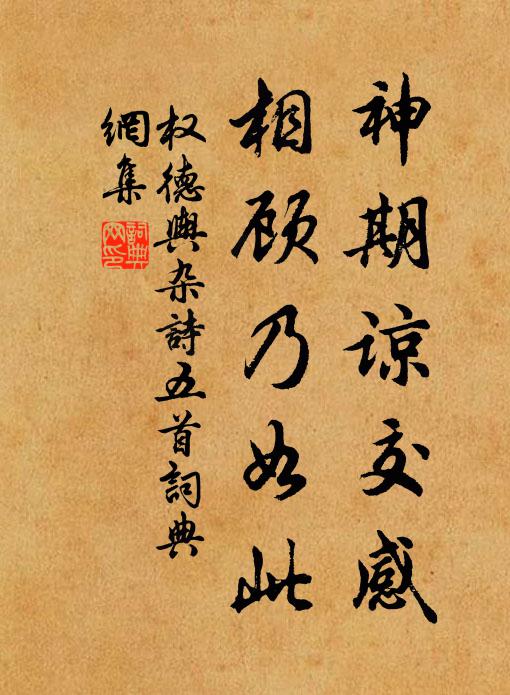 神期谅交感
相顾乃如此
权德舆杂詩五首詞典
網集
詞典
网印